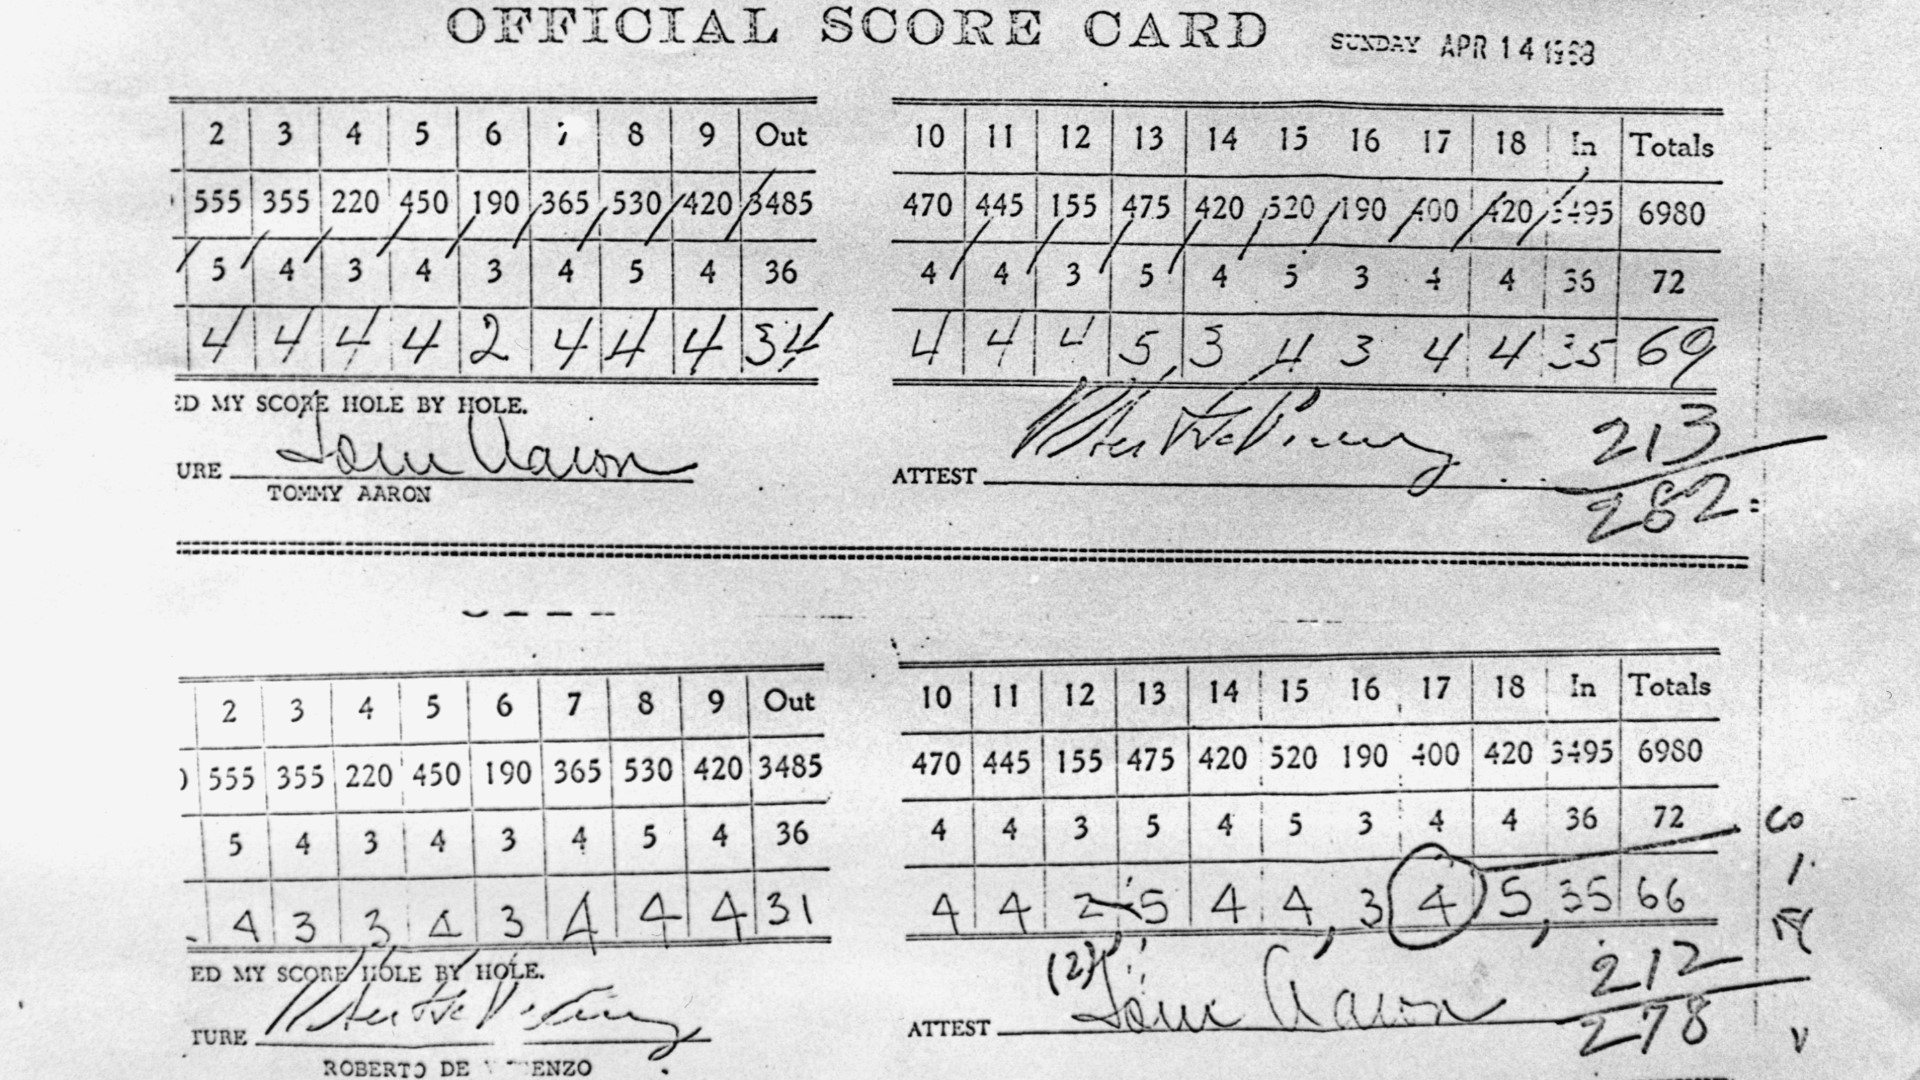 OFFICIAL SCORE CARD SUNDAY APR 14 1968
2 3 4 5 6 7 8 9 Out 10 11 12 13 14 15 16 17 18 In Totals
555 355 220 450 190 365 530 420 3485 470 445 155 475 420 520 190 400 420 3495 6980
5 4 3 4 3 4 5 4 36 4 4 3 5 4 5 3 4 4 36 72
4 4 4 4 2 4 4 4 34 4 4 4 5 3 4 3 4 4 35 69
ED MY SCORE HOLE BY HOLE.
213
URE Tom Aaron ATTEST
TOMMY AARON
282
2 3 4 5 6 7 8 9 Out 10 11 12 13 14 15 16 17 18 In Totals
555 355 220 450 190 365 530 420 3485 470 445 155 475 420 520 190 400 420 3495 6980
5 4 3 4 3 4 5 4 36 4 4 3 5 4 5 3 4 4 36 72
4 3 3 4 3 4 4 4 31 4 4 2 5 4 4 3 4 5 35 66
ED MY SCORE HOLE BY HOLE. (2)
212
TURE ATTEST Tom Aaron
278
ROBERTO DE